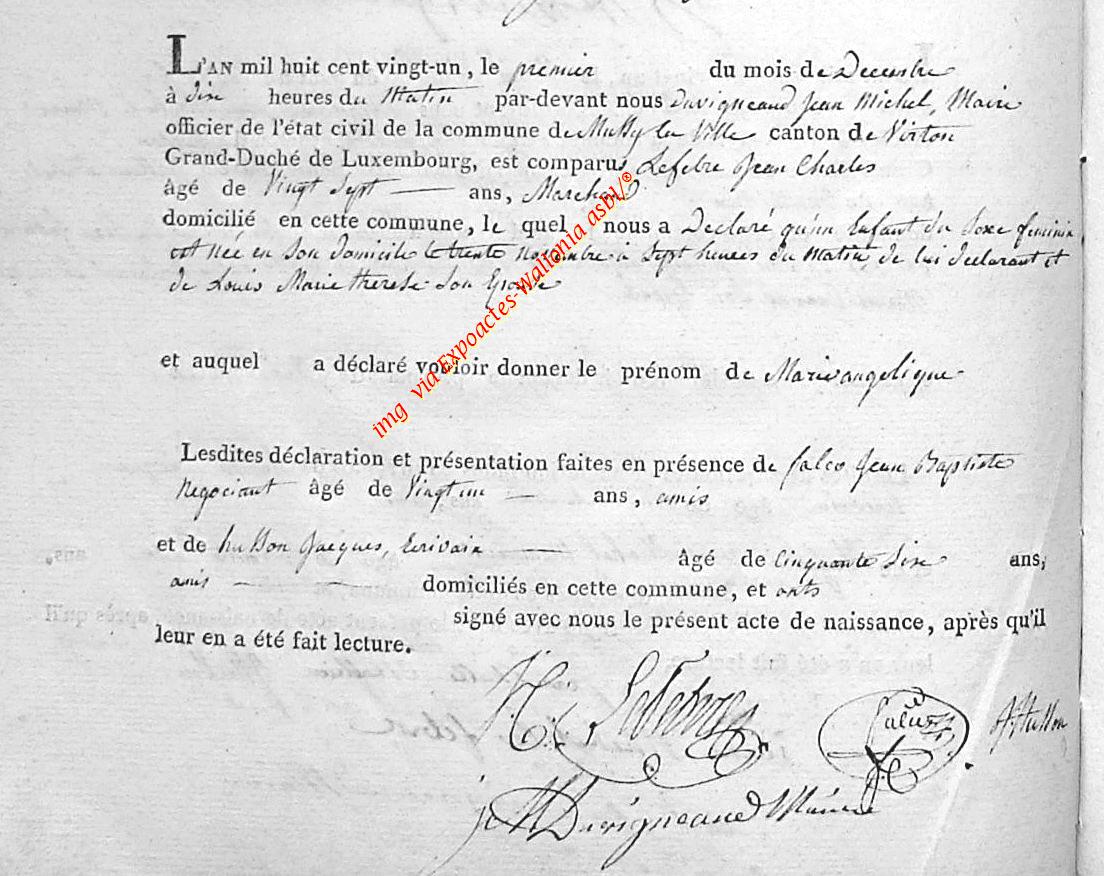 L'AN mil huit cent vingt-un, le premier du mois de Decembre
à dix heures du Matin par-devant nous Duvigneaud Jean Michel, Maire
officier de l'état civil de la commune de Mussy la Ville canton de Virton
Grand-Duché de Luxembourg, est comparu Lefebre Jean Charles
âgé de Vingt Sept ans, Marchand
domicilié en cette commune, le quel nous a Declaré qu'un Enfant du Sexe feminin
est née en Son Domicile le trente Novembre à Sept heures du Matin, de lui declarant et
de Louis Marie therese Son Epouse
et auquel a déclaré vouloir donner le prénom de Marie angelique
Lesdites déclaration et présentation faites en présence de Jean Baptiste
Negociant âgé de Vingt un ans, amis
et de husson Jacques, Ecrivain âgé de Cinquante Six ans,
amis domiciliés en cette commune, et onts
signé avec nous le présent acte de naissance, après qu'il
leur en a été fait lecture.
Lefebvre
Husson
Duvigneaud Maire
img via Expoactes-Wallonia asbl/®